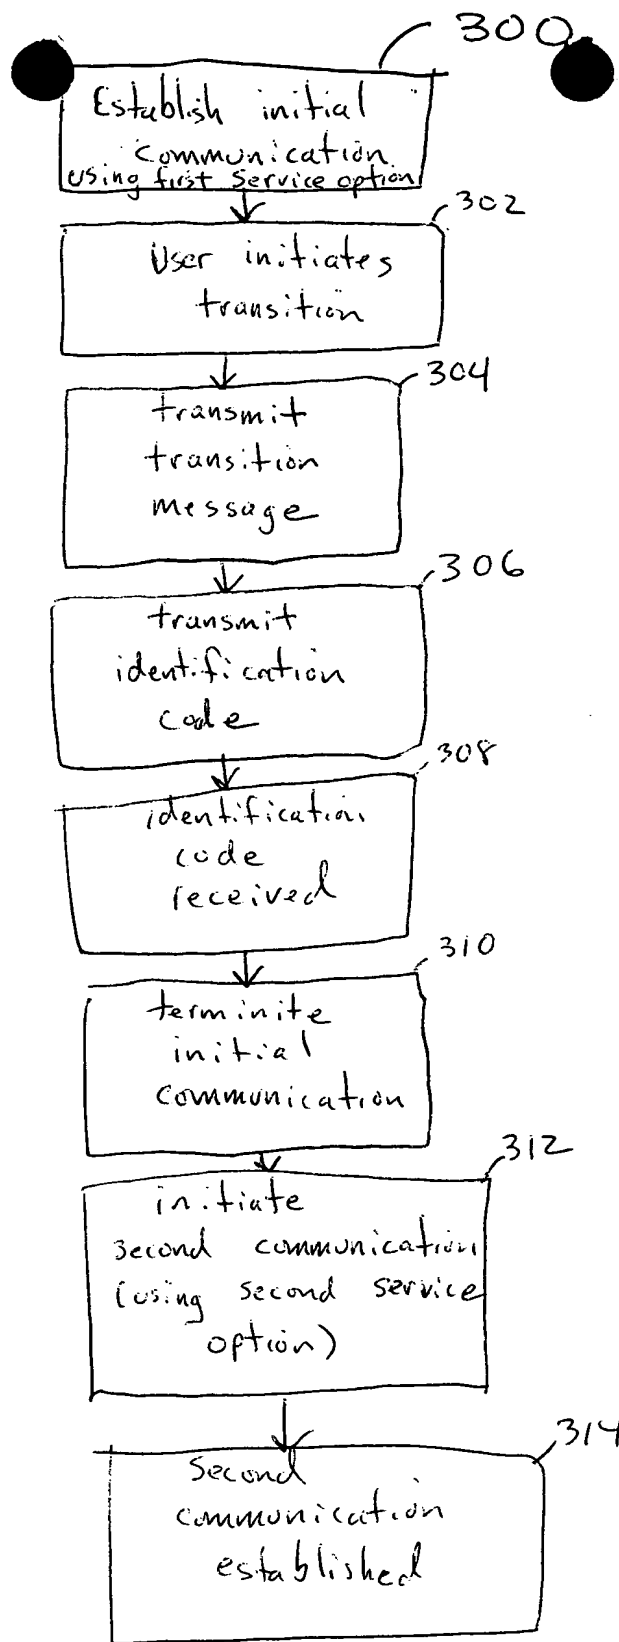 300
Establish initial
communication
using first service option
302
User initiates
transition
304
transmit
transition
message
306
transmit
identification
code
308
identification
code
received
310
terminite
initial
communication
312
initiate
second communication
(using second service
option)
314
Second
communication
established